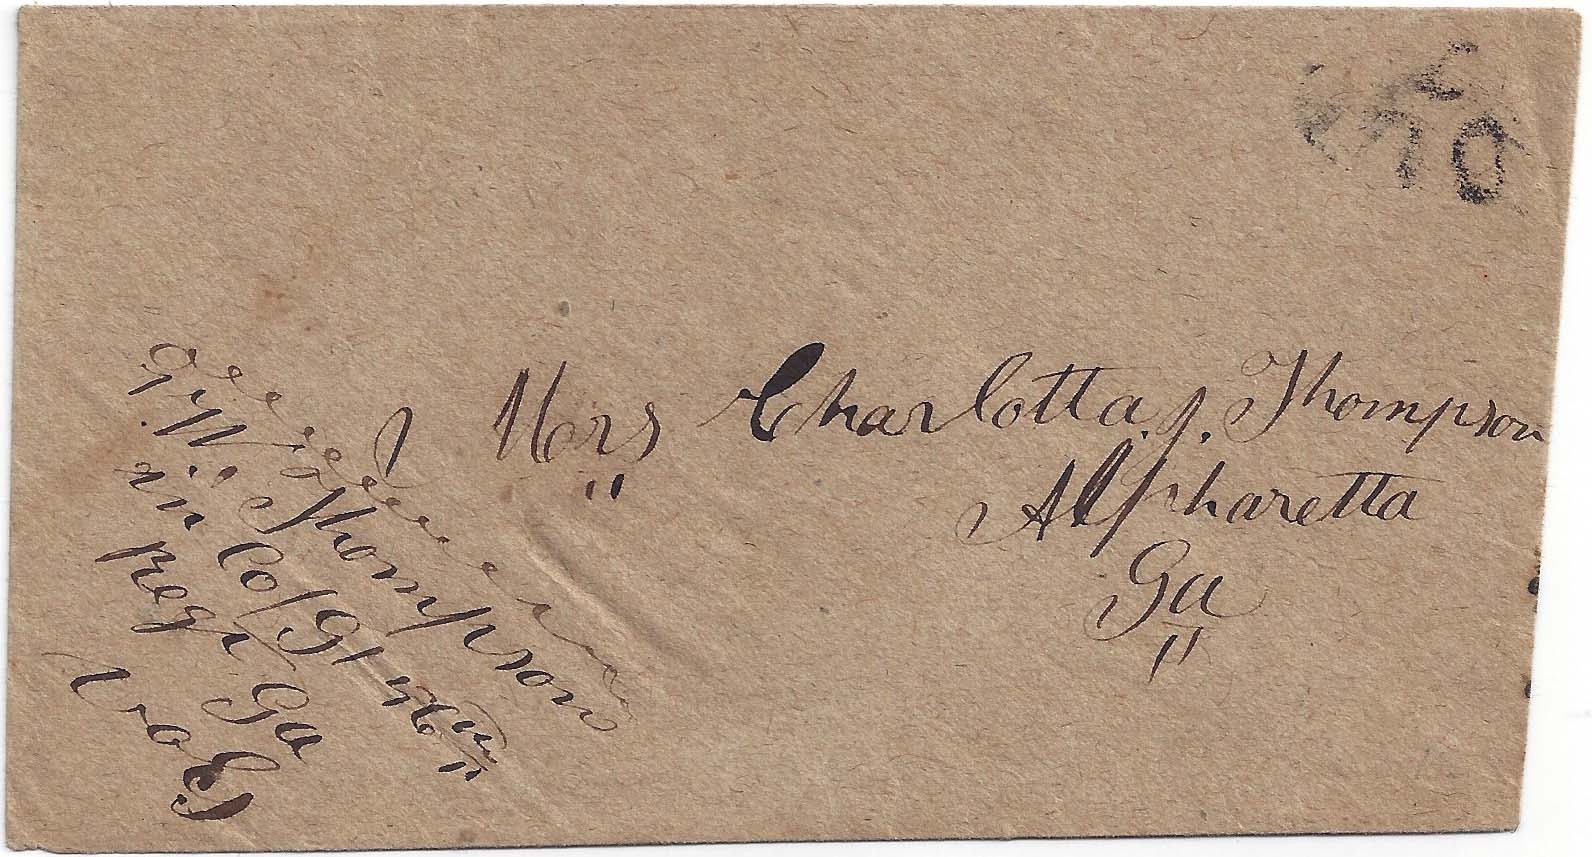 10
Mrs Charlotta. J. Thompson
Alpharetta
Ga
G. W. Thompson
in Co/G, 56th
Regt Ga
Vol